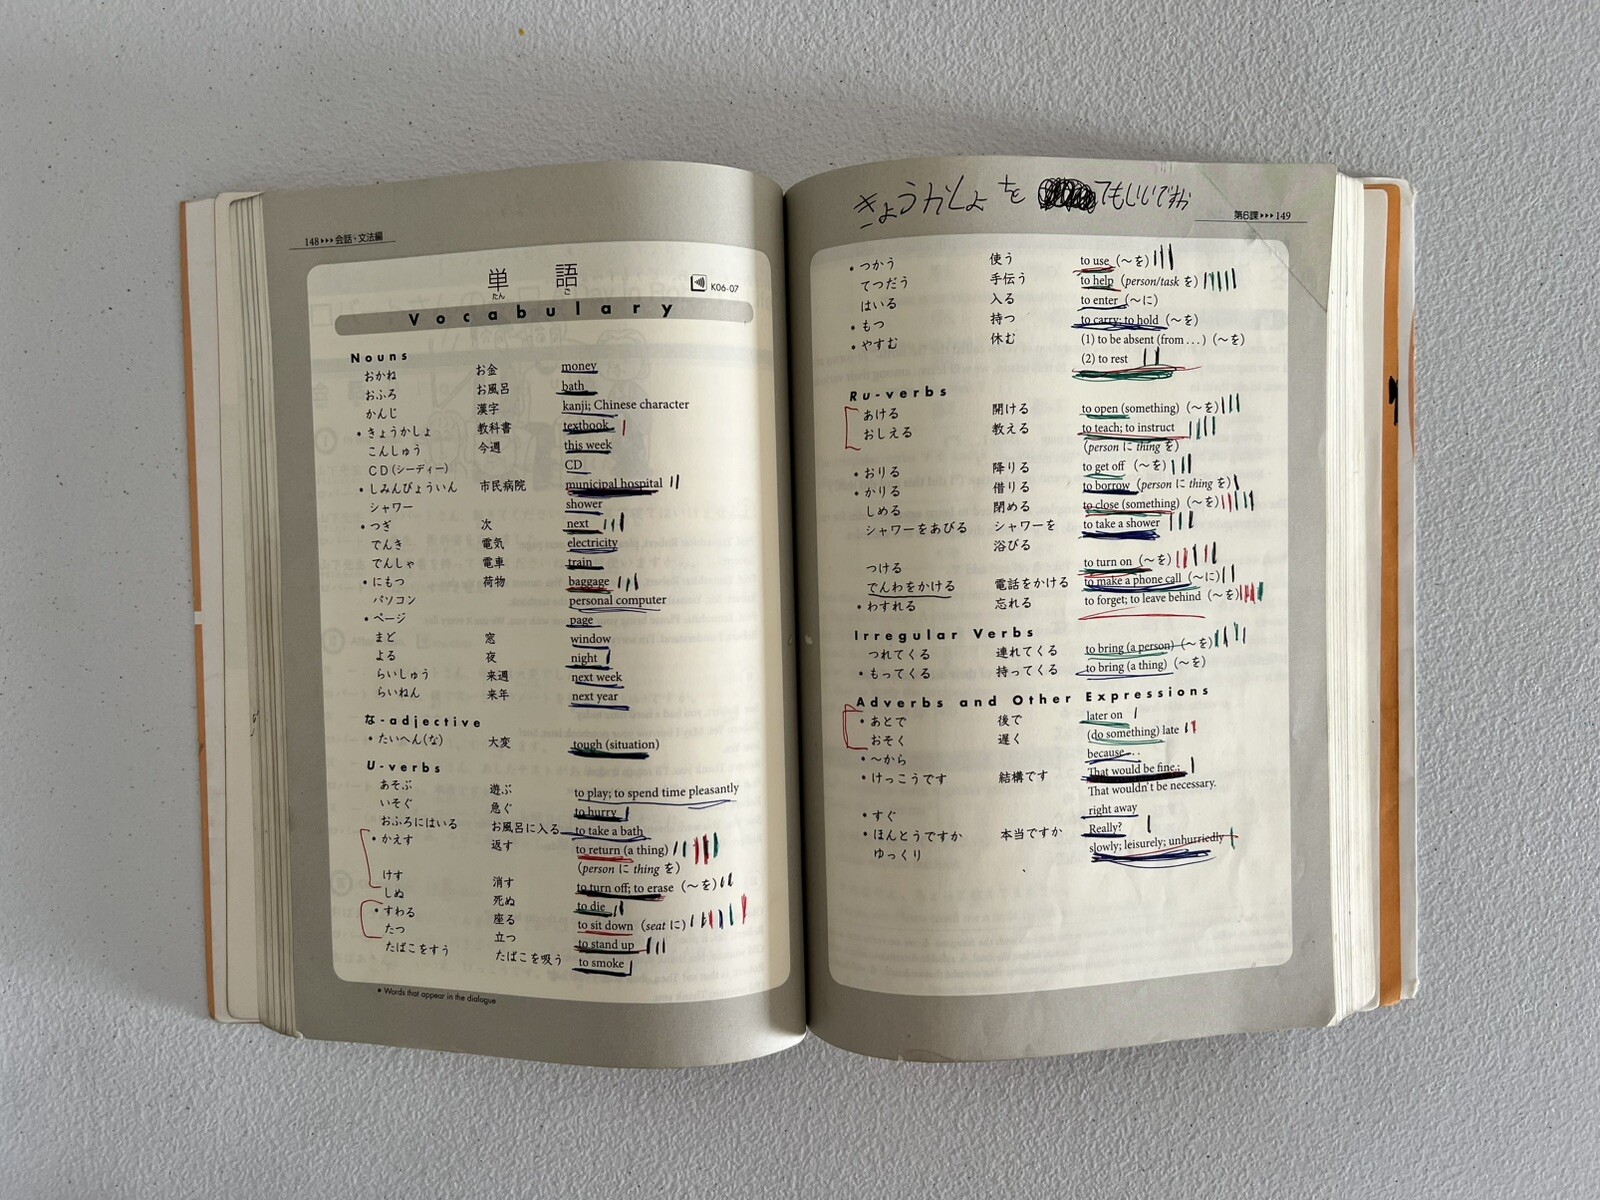 148▸▸▸会話・文法編
単語
たん ご
K06-07
Vocabulary
Nouns
おかね お金 money
おふろ お風呂 bath
かんじ 漢字 kanji; Chinese character
• きょうかしょ 教科書 textbook
こんしゅう 今週 this week
CD(シーディー) CD
• しみんびょういん 市民病院 municipal hospital
シャワー shower
• つぎ 次 next
でんき 電気 electricity
でんしゃ 電車 train
• にもつ 荷物 baggage
パソコン personal computer
• ページ page
まど 窓 window
よる 夜 night
らいしゅう 来週 next week
らいねん 来年 next year
な-adjective
• たいへん(な) 大変 tough (situation)
U-verbs
あそぶ 遊ぶ to play; to spend time pleasantly
いそぐ 急ぐ to hurry
おふろにはいる お風呂に入る to take a bath
• かえす 返す to return (a thing)
(person に thing を)
けす 消す to turn off; to erase (〜を)
しぬ 死ぬ to die
• すわる 座る to sit down (seat に)
たつ 立つ to stand up
たばこをすう たばこを吸う to smoke
• Words that appear in the dialogue
きょうかしょ を てもいいですか
第6課▸▸▸149
• つかう 使う to use (〜を)
てつだう 手伝う to help (person/task を)
はいる 入る to enter (〜に)
• もつ 持つ to carry; to hold (〜を)
• やすむ 休む (1) to be absent (from . . .) (〜を)
(2) to rest
Ru-verbs
あける 開ける to open (something) (〜を)
おしえる 教える to teach; to instruct
(person に thing を)
• おりる 降りる to get off (〜を)
• かりる 借りる to borrow (person に thing を)
しめる 閉める to close (something) (〜を)
シャワーをあびる シャワーを to take a shower
浴びる
つける to turn on (〜を)
でんわをかける 電話をかける to make a phone call (〜に)
• わすれる 忘れる to forget; to leave behind (〜を)
Irregular Verbs
つれてくる 連れてくる to bring (a person) (〜を)
• もってくる 持ってくる to bring (a thing) (〜を)
Adverbs and Other Expressions
• あとで 後で later on
おそく 遅く (do something) late
• 〜から because . . .
• けっこうです 結構です That would be fine.;
That wouldn't be necessary.
• すぐ right away
• ほんとうですか 本当ですか Really?
ゆっくり slowly; leisurely; unhurriedly